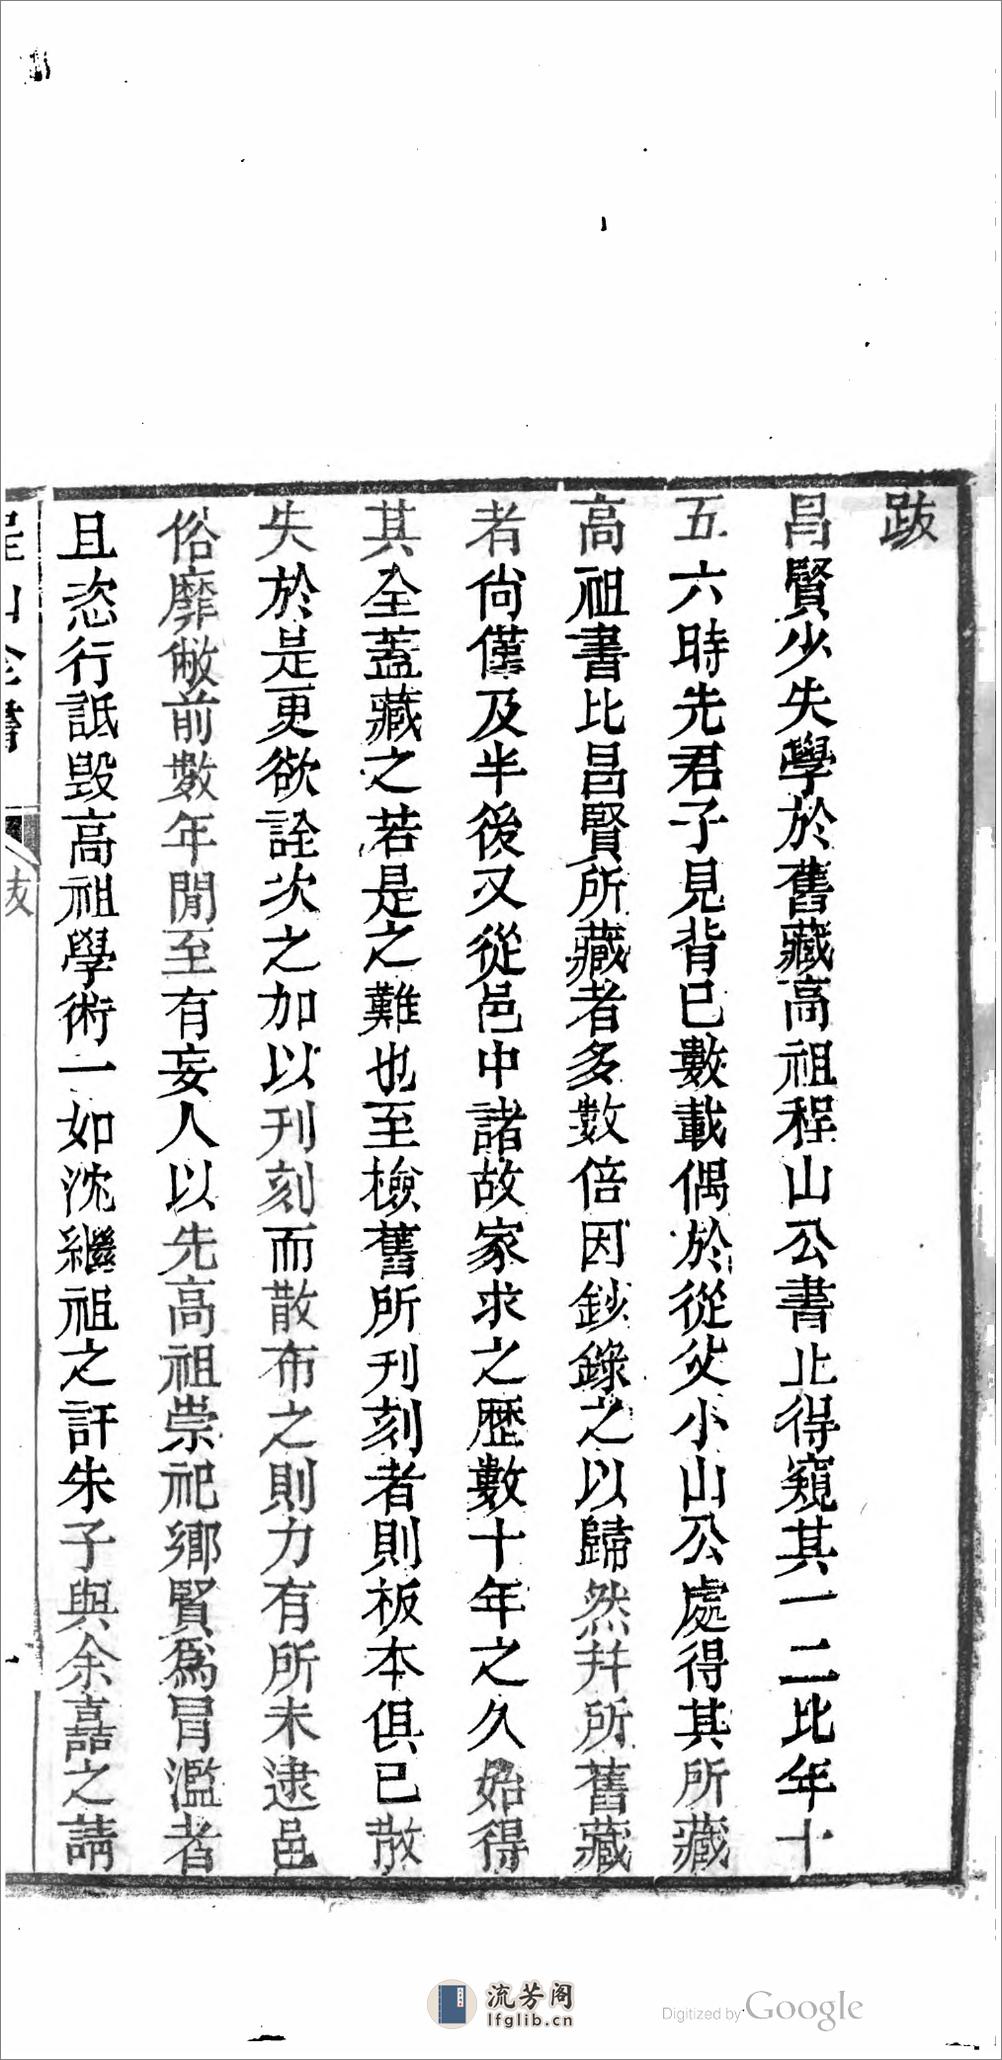 跋
昌賢少失學於舊藏高祖程山公書止得窺其一二比年十
五六時先君子見背已數載偶於從父小山公處得其所藏
高祖書比昌賢所藏者多數倍因鈔錄之以歸然并所舊藏
者尙僅及半後又從邑中諸故家求之歷數十年之久始得
其全蓋藏之若是之難也至檢舊所刊刻者則板本俱已散
失於是更欲詮次之加以刊刻而散布之則力有所未逮邑
俗靡敝前數年閒至有妄人以先高祖崇祀鄉賢爲冒濫者
且恣行詆毀高祖學術一如沈繼祖之訐朱子與余嚞之請
程山全書
跋
一
流芳阁
lfglib.cn
Digitized by Google